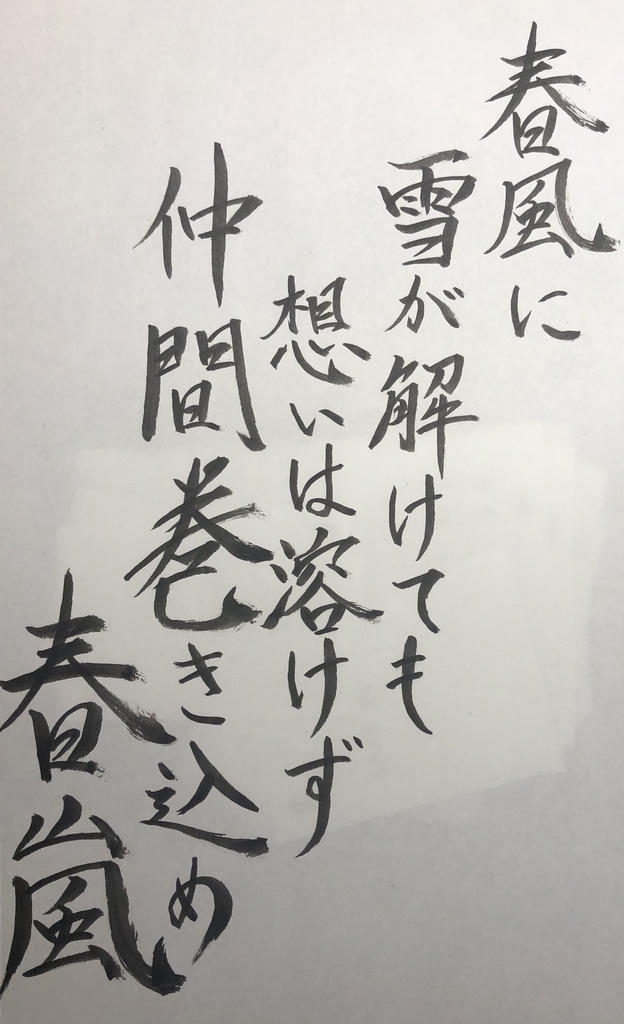 春風に
雪が解けても
想いは溶けず
仲間巻き込め
春嵐